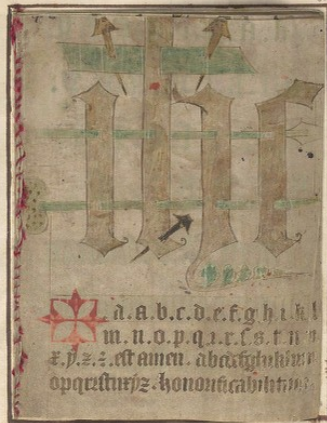 ihc
a. a. b. c. d. e. f. g. h. i. k. l
m. n. o. p. q. r. ſ. s. t. u
x. y. z. est amen. abcdefghiklm
opqrsſturyz. honorificabilitu